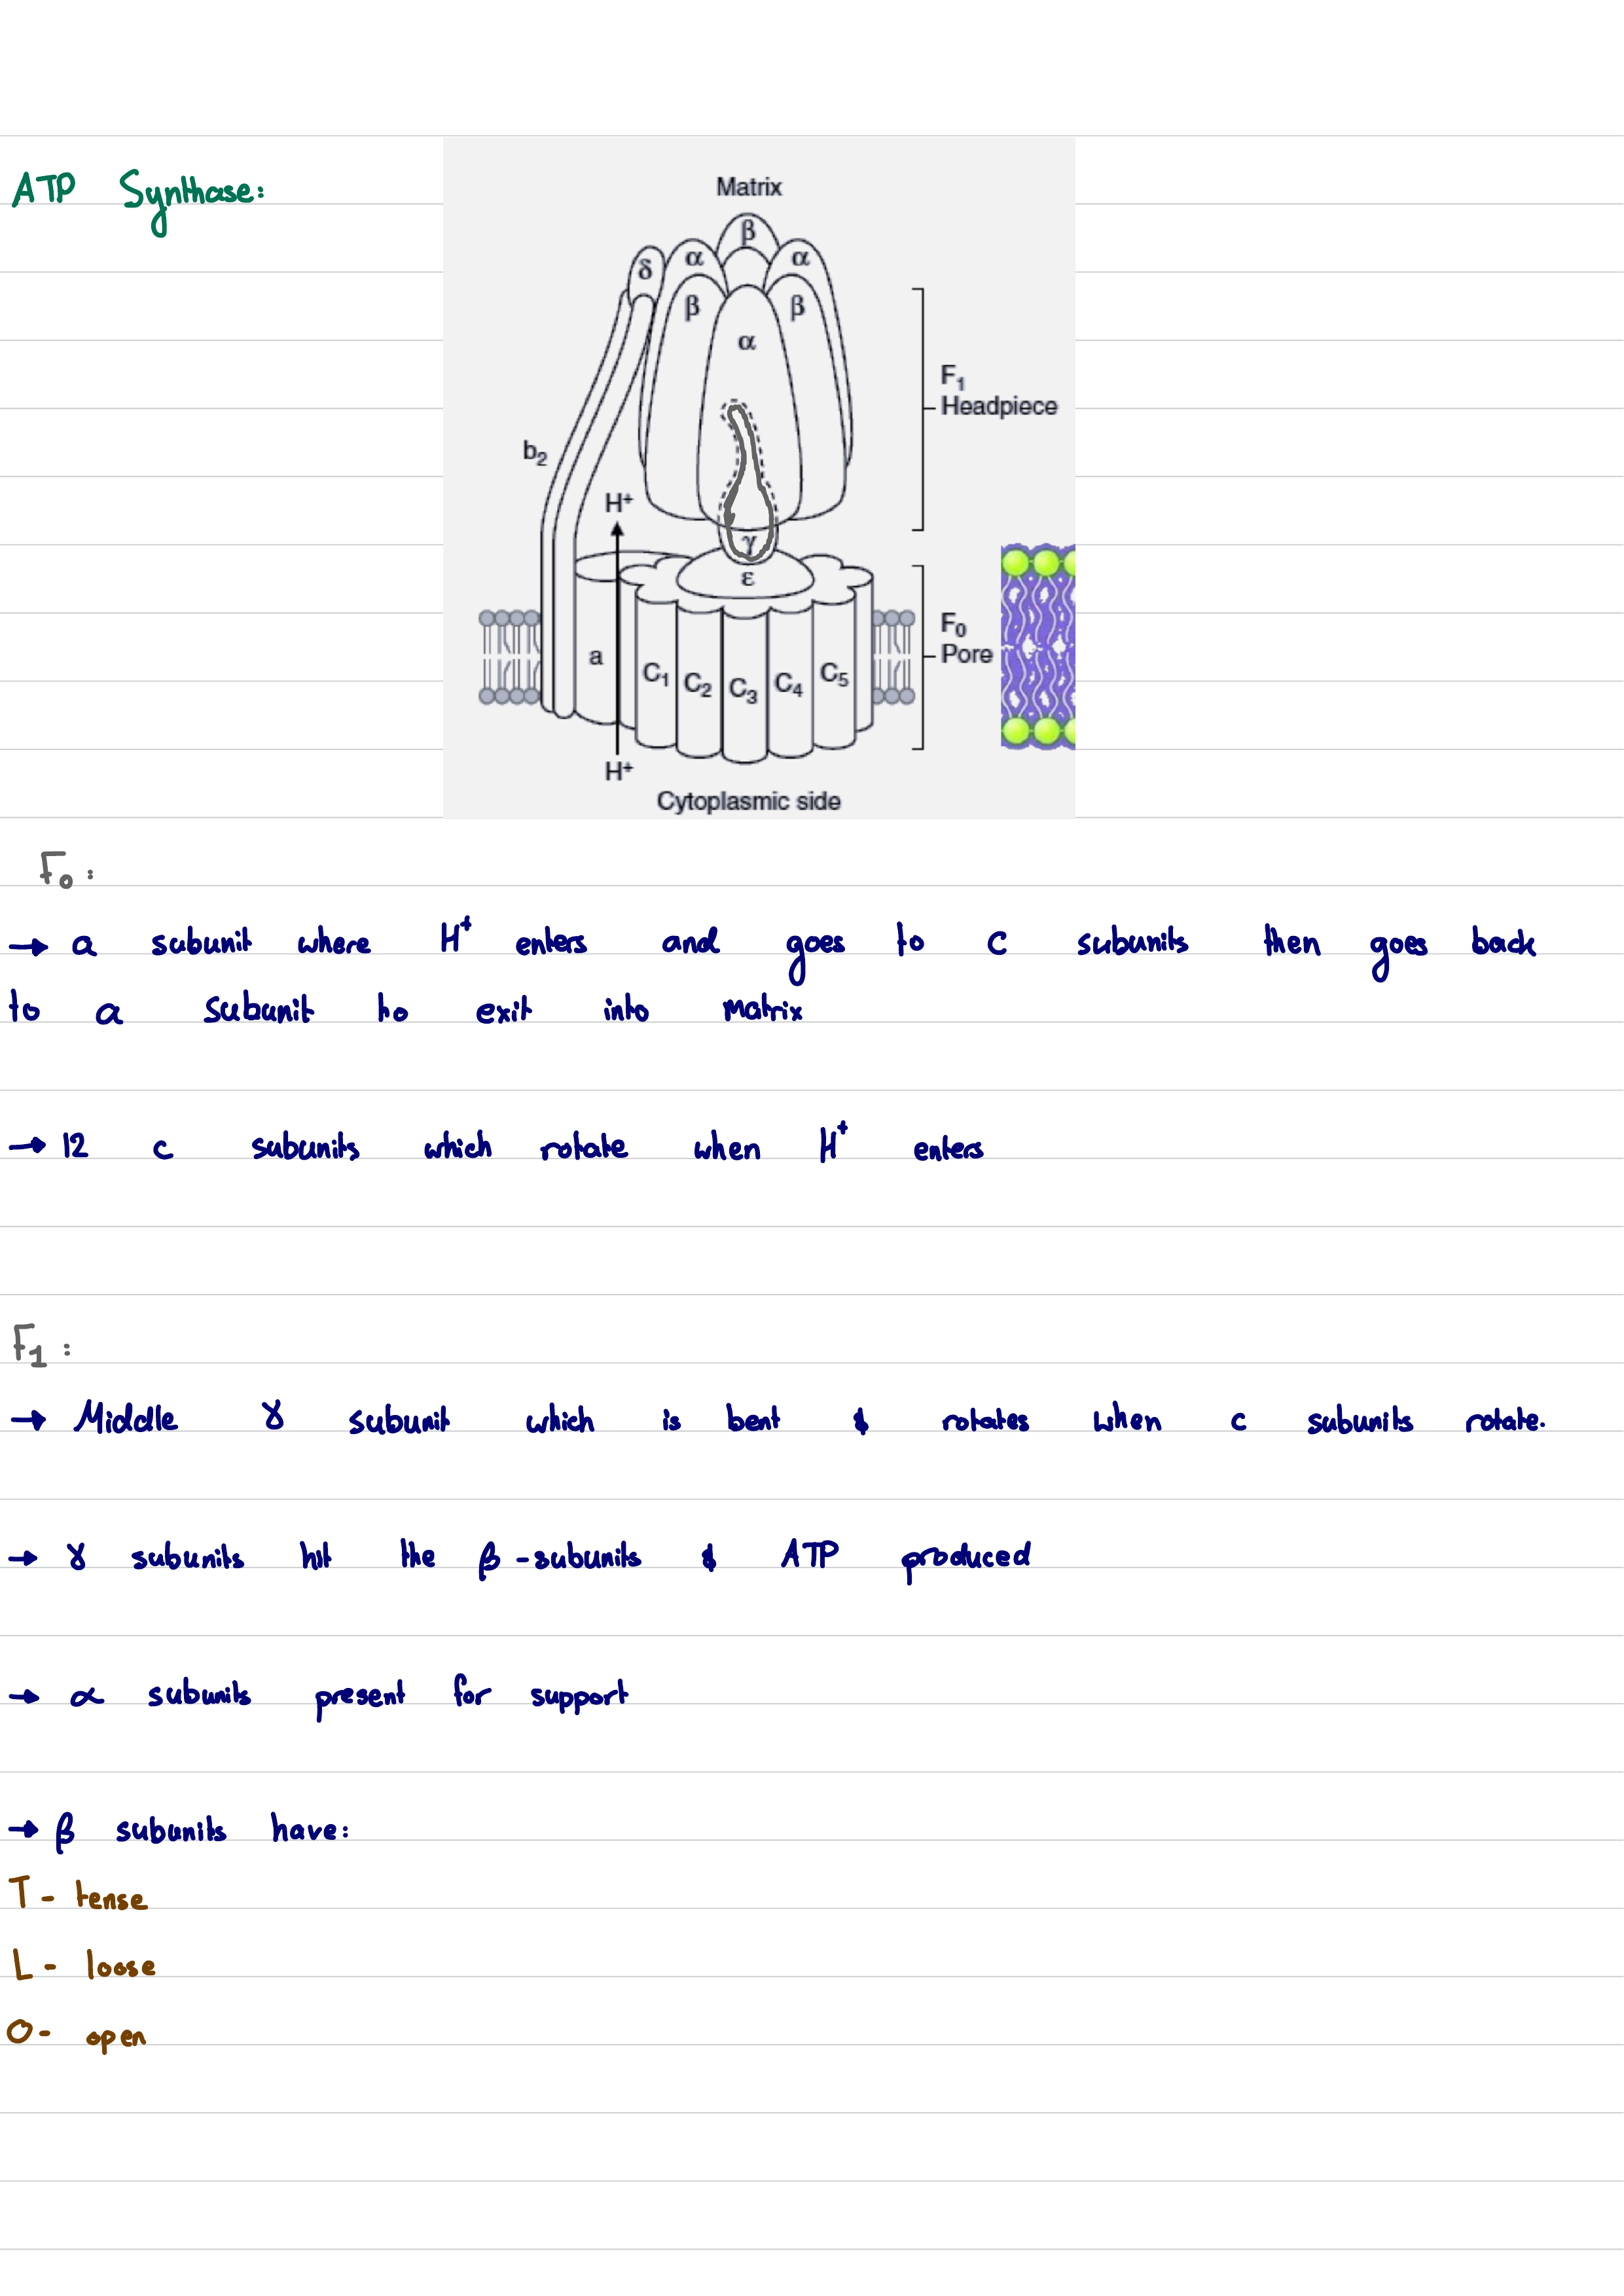 ATP Synthase:
Matrix
β
α α
δ
β β
α
F₁
Headpiece
b₂
H⁺
γ
ε
F₀
Pore
a
C₁ C₂ C₃ C₄ C₅
H⁺
Cytoplasmic side
F₀:
→ a subunit where H⁺ enters and goes to c subunits then goes back
to a subunit to exit into matrix
→ 12 c subunits which rotate when H⁺ enters
F₁:
→ Middle γ subunit which is bent & rotates when c subunits rotate.
→ γ subunits hit the β-subunits & ATP produced
→ α subunits present for support
→ β subunits have:
T - tense
L - loose
O - open